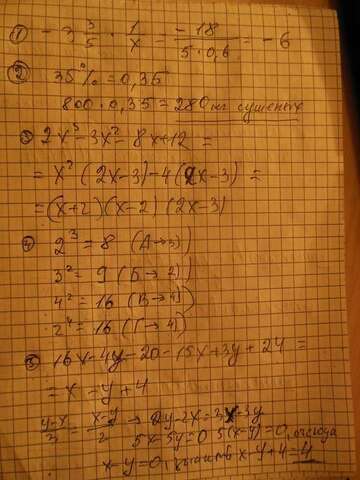 ① - 3 3/5 · 1/x = -18/(5·0,6) = -6
② 35% = 0,35
800 · 0,35 = 280 кг сушеных
③ 2x³ - 3x² - 8x + 12 =
= x² (2x-3) - 4(2x-3) =
= (x+2)(x-2)(2x-3)
④ 2³ = 8 (А→3)
3² = 9 (Б→2)
4² = 16 (В→4)
2⁴ = 16 (Г→4)
⑤ 16x - 4y - 20 - 15x + 3y + 24 =
= x - y + 4
(y-x)/3 = (x-y)/2 → 2y-2x = 3x-3y
5x-5y=0 5(x-y)=0, отсюда
x-y=0, x-y+4=4